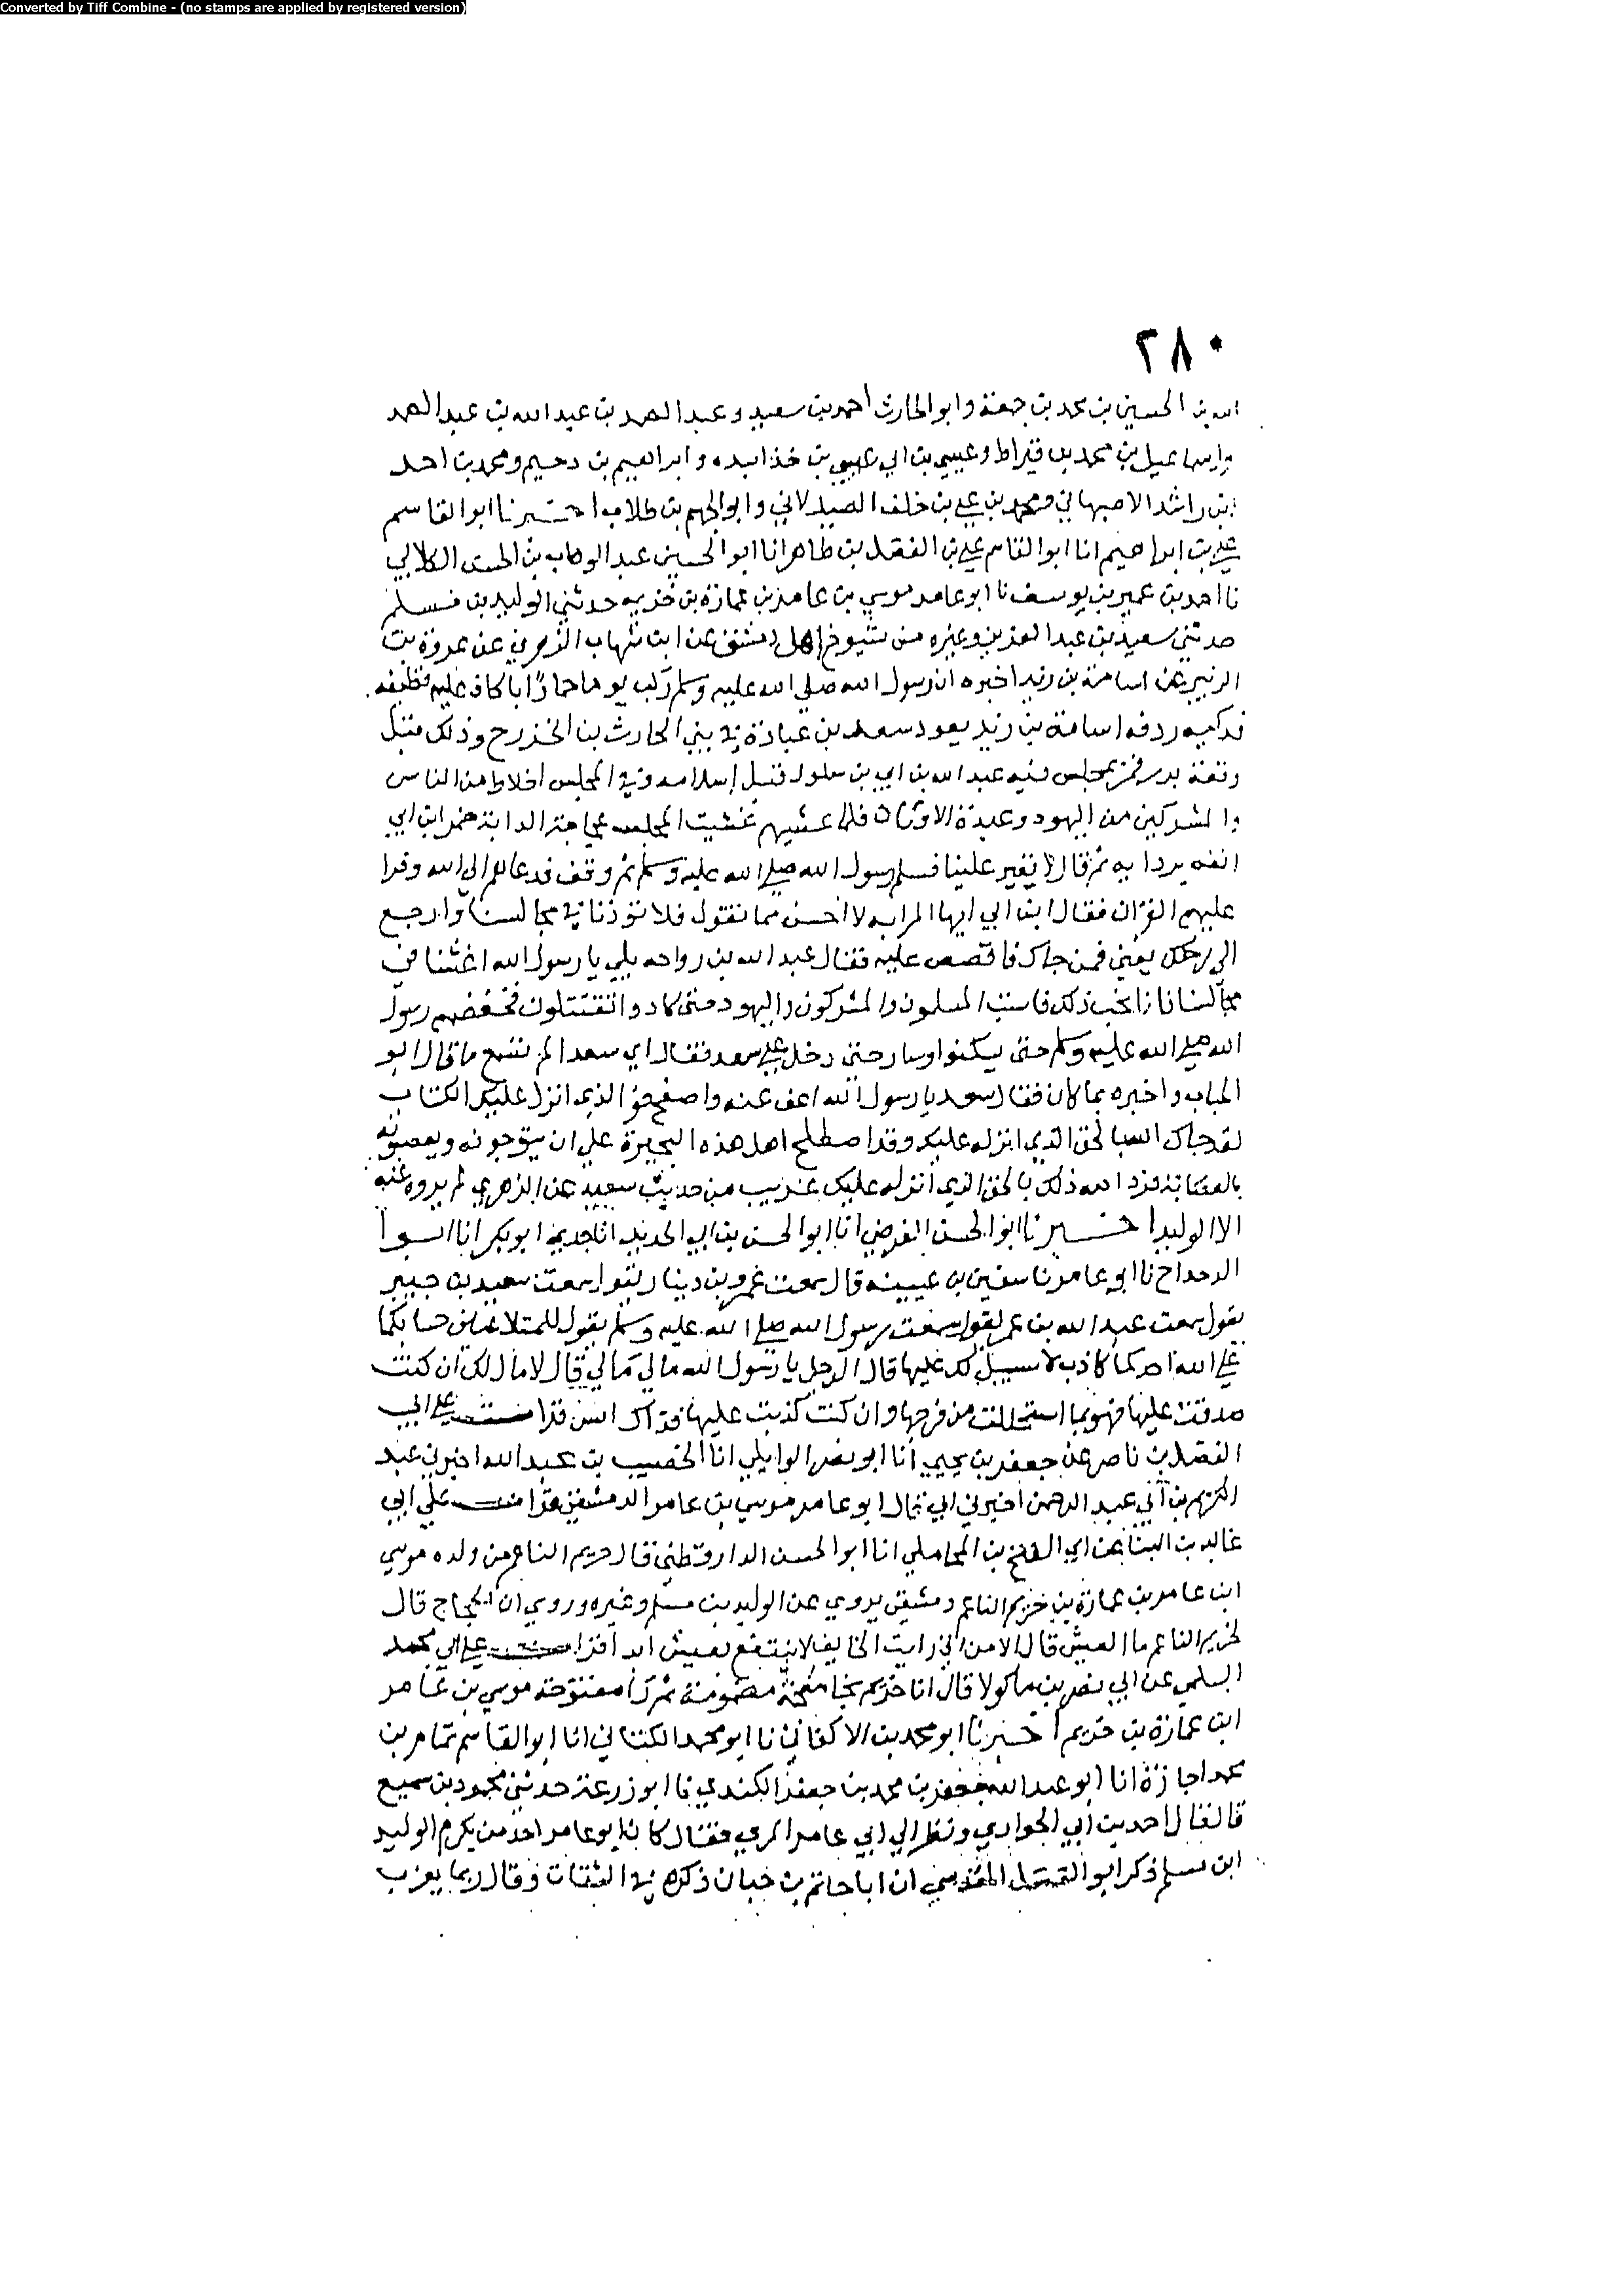 Converted by Tiff Combine - (no stamps are applied by registered version)
٢٨٠
الله بن الحسين بن محمد بن جمعة وابو الحارث احمد بن سعيد وعبد الصمد بن عبد الله بن عبد الصمد
واسماعيل بن محمد بن قيراط وعيسى بن ابي عيسى بن خذابنده وابراهيم بن دحيم ومحمد بن احمد
ابن راشد الاصبهاني ومحمد بن علي بن خلف الصيدلاني وابو الجهم بن طلاب اخبرنا ابو القاسم
علي بن ابراهيم انا ابو القاسم علي بن الفضل بن طاهر انا ابو الحسين عبد الوهاب بن الحسن الكلابي
نا احمد بن عمير بن يوسف نا ابو عامر موسي بن عامر بن عمارة بن خزيم حدثني الوليد بن مسلم
حدثني سعيد بن عبد العزيز وغيره من شيوخ اهل دمشق عن ابن شهاب الزهري عن عروة بن
الزبير عن اسامة بن زيد اخبره ان رسول الله صلي الله عليه وسلم ركب يوما حمارا باكاف عليه قطيفه
فدكيه ردفه اسامة بن زيد يعود سعد بن عبادة في بني الحارث بن الخزرج وذلك قبل
وقعة بدر فمر بمجلس فيه عبد الله بن ابي بن سلول قبل إسلامه وفي المجلس اخلاط من الناس
والمشركين من اليهود وعبدة الاوثان فلما غشيهم غشيت المجلس عجاجة الدابة خمر ابن ابي
انفه بردابه ثم قال لا تغبر علينا فسلم رسول الله صلي الله عليه وسلم ثم وقف فدعاهم الي الله وقرا
عليهم القرآن فقال ابن ابي ايها المرا به لا احسن مما تقول فلا توذنا في مجالسنا وارجع
الي رحلك يعني فمن جاك فاقصص عليه فقال عبد الله بن رواحه بلي يا رسول الله اغشنا في
مجالسنا فانا نحب ذلك فاستب المسلمون والمشركون واليهود حتي كادوا تقتتلون فخفضهم رسول
الله صلي الله عليه وسلم حتي سكنوا وسار حتي دخل علي سعد فقال اي سعد الم تسمع ما قال ابو
الحباب واخبره بما كان فقال سعد يا رسول الله اعف عنه واصفح فو الذي انزل عليك الكتاب
لقد جاك الله بالحق الذي انزله عليك وقد اصطلح اهل هذه البحيرة علي ان يتوجونه ويعصبونه
بالعصابة فرد الله ذلك بالحق الذي انزله عليك غريب من حديث سعيد عن الزهري لم يروه عنه
الا الوليد اخبرنا ابو الحسن الفرضي انا ابو الحسن بن ابي الحديد انا جدي ابو بكر انا ابو
الدحداح نا ابو عامر نا سفين بن عيينه قال سمعت عمرو بن دينار يقول سمعت سعيد بن جبير
يقول سمعت عبد الله بن عمر يقول سمعت رسول الله صلي الله عليه وسلم يقول للمتلاعنين حسابكما
علي الله احدكما كاذب لا سبيل لك عليها قال الرجل يا رسول الله مالي مالي قال لا مال لك ان كنت
صدقت عليها فهو بما استحللت من فرجها وان كنت كذبت عليها فذاك قرات علي ابي
الفضل بن ناصر عن جعفر بن يحيي انا ابو نصر الوايلي انا الخصيب بن عبد الله اخبرني عبد
الكريم بن ابي عبد الرحمن اخبرني ابي قال ابو عامر موسي بن عامر الدمشقي قرات علي ابي
غالب بن البنا عن ابي الفتح بن المحاملي انا ابو الحسن الدارقطني قال خريم الناعم من ولده موسي
ابن عامر بن عمارة بن خزيم الناعم دمشقي يروي عن الوليد بن مسلم وغيره وروي ان الحجاج قال
لخريم الناعم ما العيش قال الامن اني رايت الخايف لا ينتفع بعيش ابدا قرات علي ابي محمد
السلمي عن ابي نصر بن ماكولا قال اما خريم بخا معجمة مضمومة ثم را مفتوحة موسي بن عامر
ابن عمارة بن خريم اخبرنا ابو محمد بن الاكفاني نا ابو محمد الكتاني انا ابو القاسم تمام بن
محمد اجازة انا ابو عبد الله جعفر بن محمد بن جعفر الكندي نا ابو زرعة حدثني محمود بن سميع
قال قال احمد بن ابي الحواري ونظر الي ابي عامر المري فقال كان ابو عامر احد من يكرم الوليد
ابن مسلم ذكر ابو الفضل المقدسي ان ابا حاتم بن حبان ذكره في الثقات وقال ربما يغرب